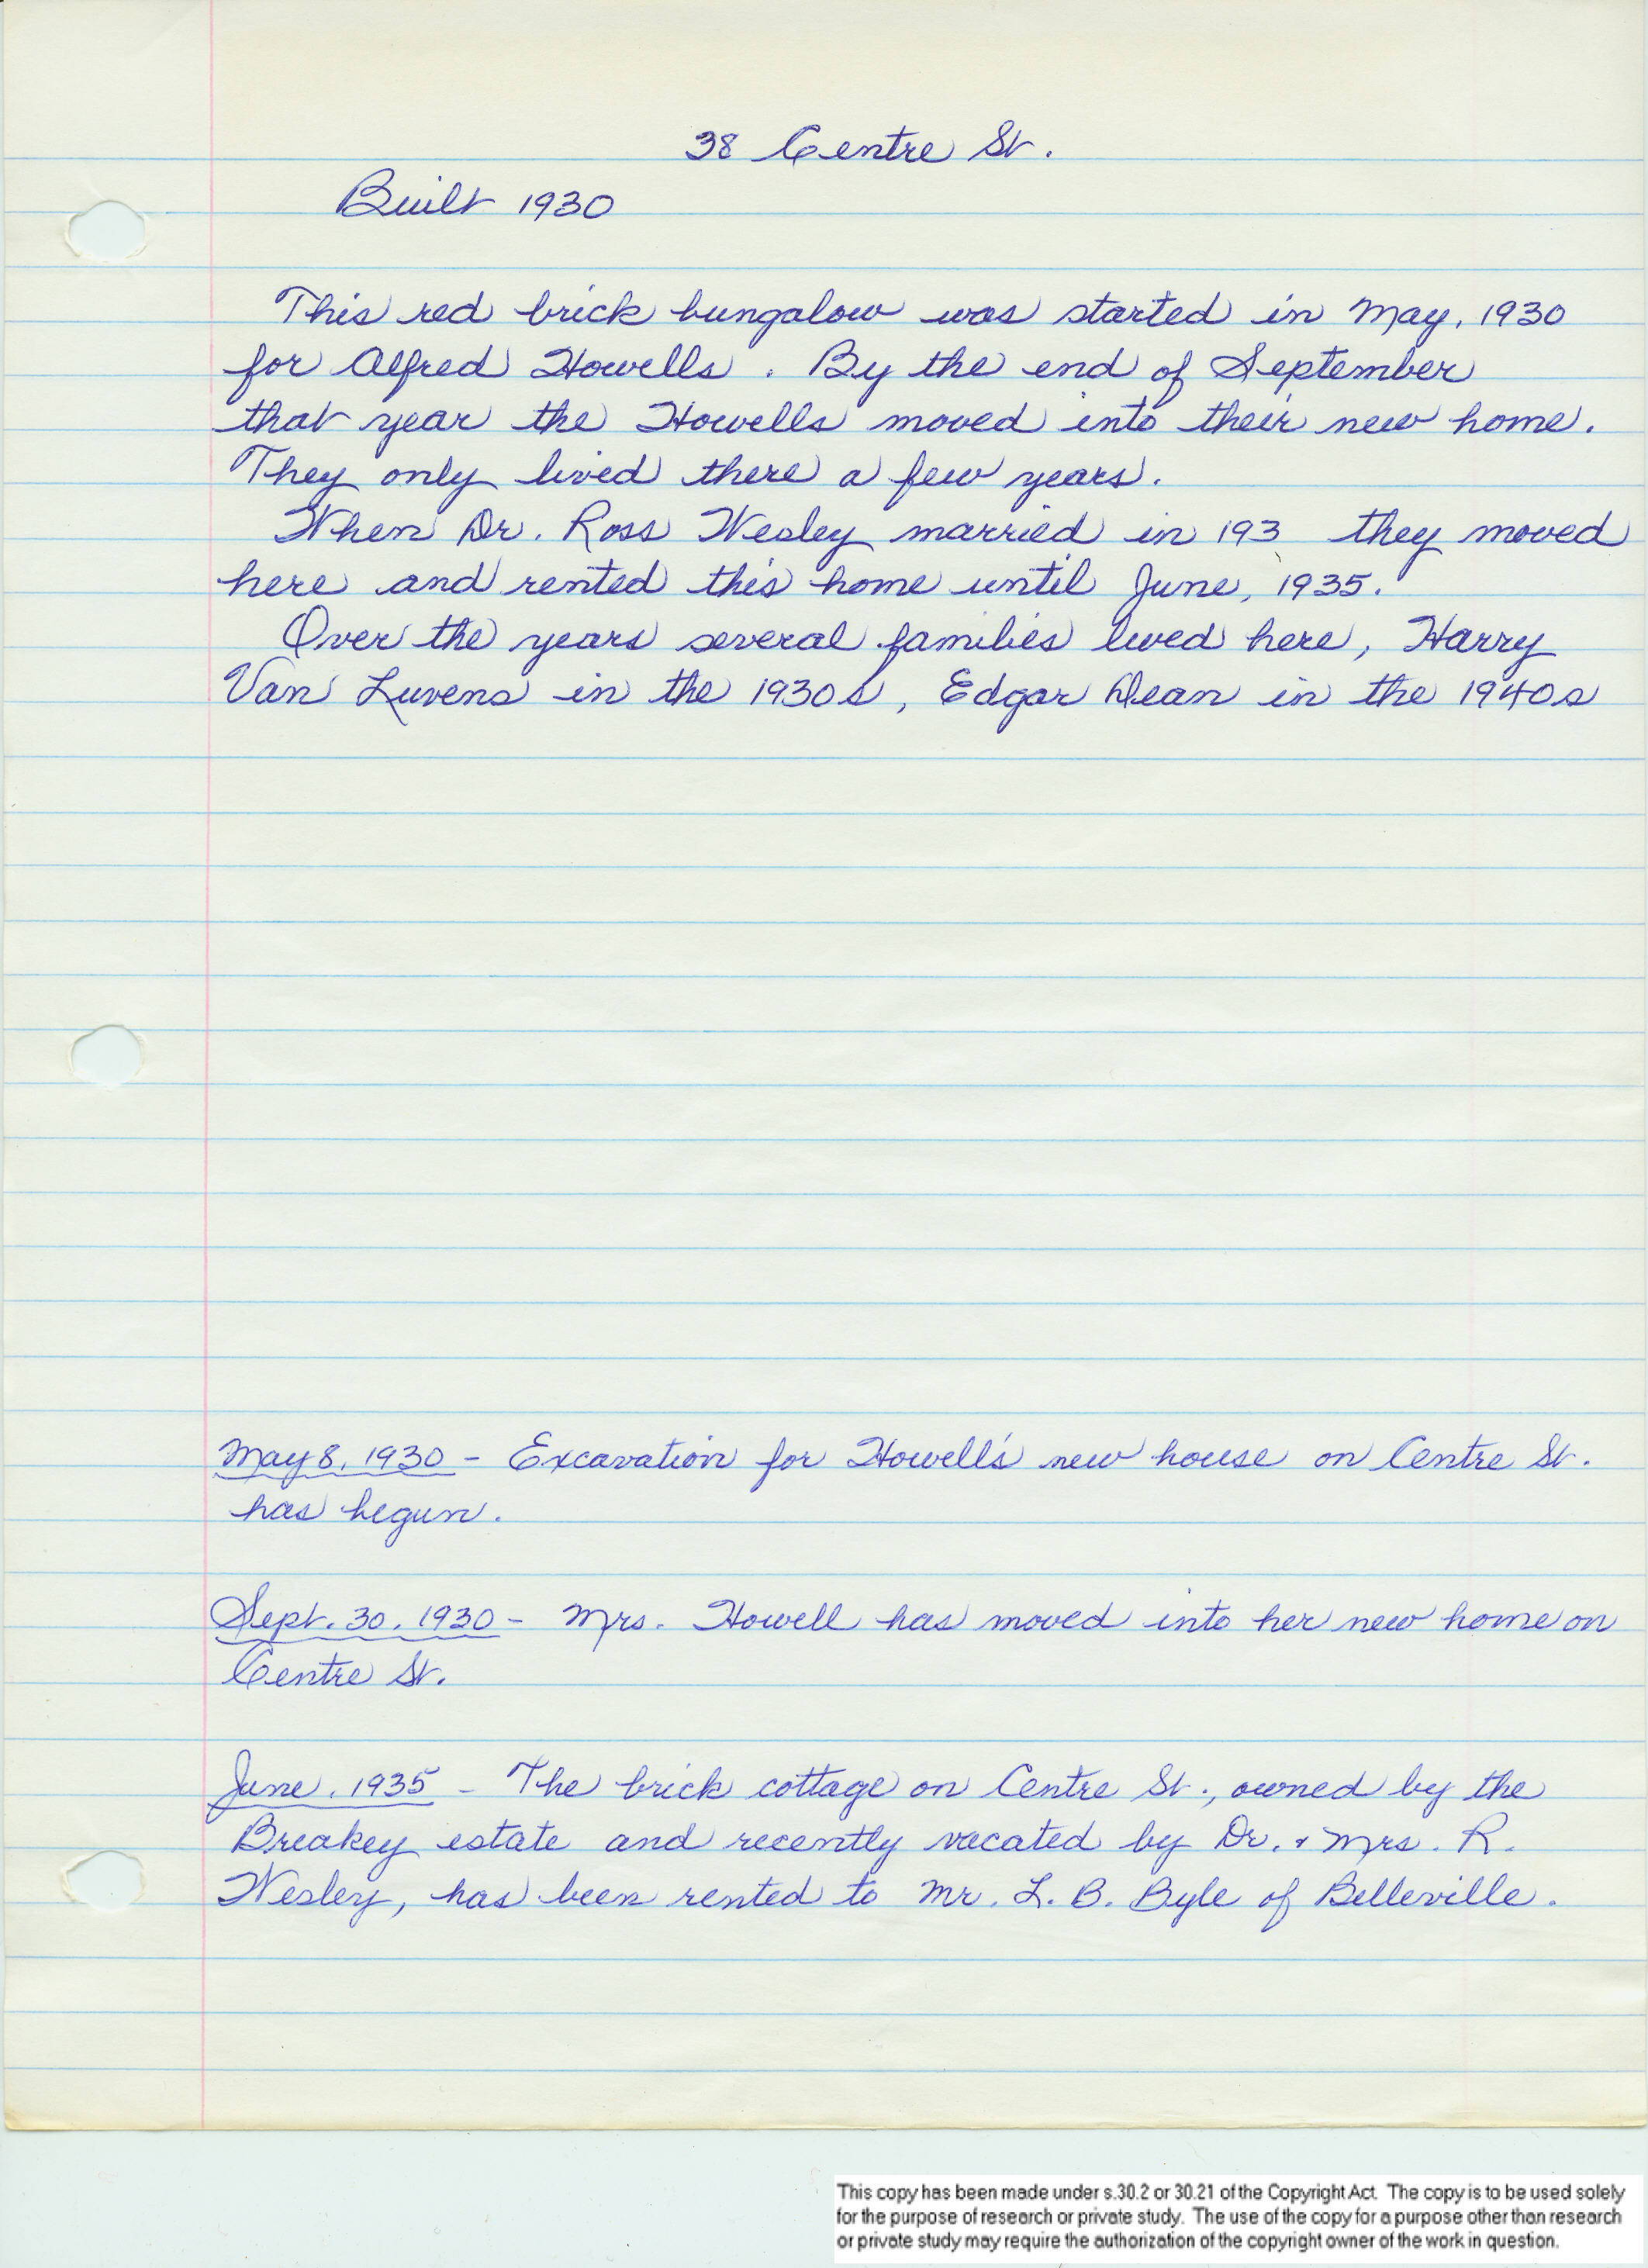 38 Centre St.
Built 1930
This red brick bungalow was started in May, 1930
for Alfred Howells. By the end of September
that year the Howells moved into their new home.
They only lived there a few years.
When Dr. Ross Wesley married in 193 they moved
here and rented this home until June, 1935.
Over the years several families lived here, Harry
Van Luvens in the 1930s, Edgar Dean in the 1940s
May 8, 1930 - Excavation for Howell's new house on Centre St.
has begun.
Sept. 30, 1930 - Mrs. Howell has moved into her new home on
Centre St.
June, 1935 - The brick cottage on Centre St., owned by the
Breakey estate and recently vacated by Dr. & Mrs. R.
Wesley, has been rented to Mr. L. B. Byle of Belleville.
This copy has been made under s.30.2 or 30.21 of the Copyright Act. The copy is to be used solely
for the purpose of research or private study. The use of the copy for a purpose other than research
or private study may require the authorization of the copyright owner of the work in question.